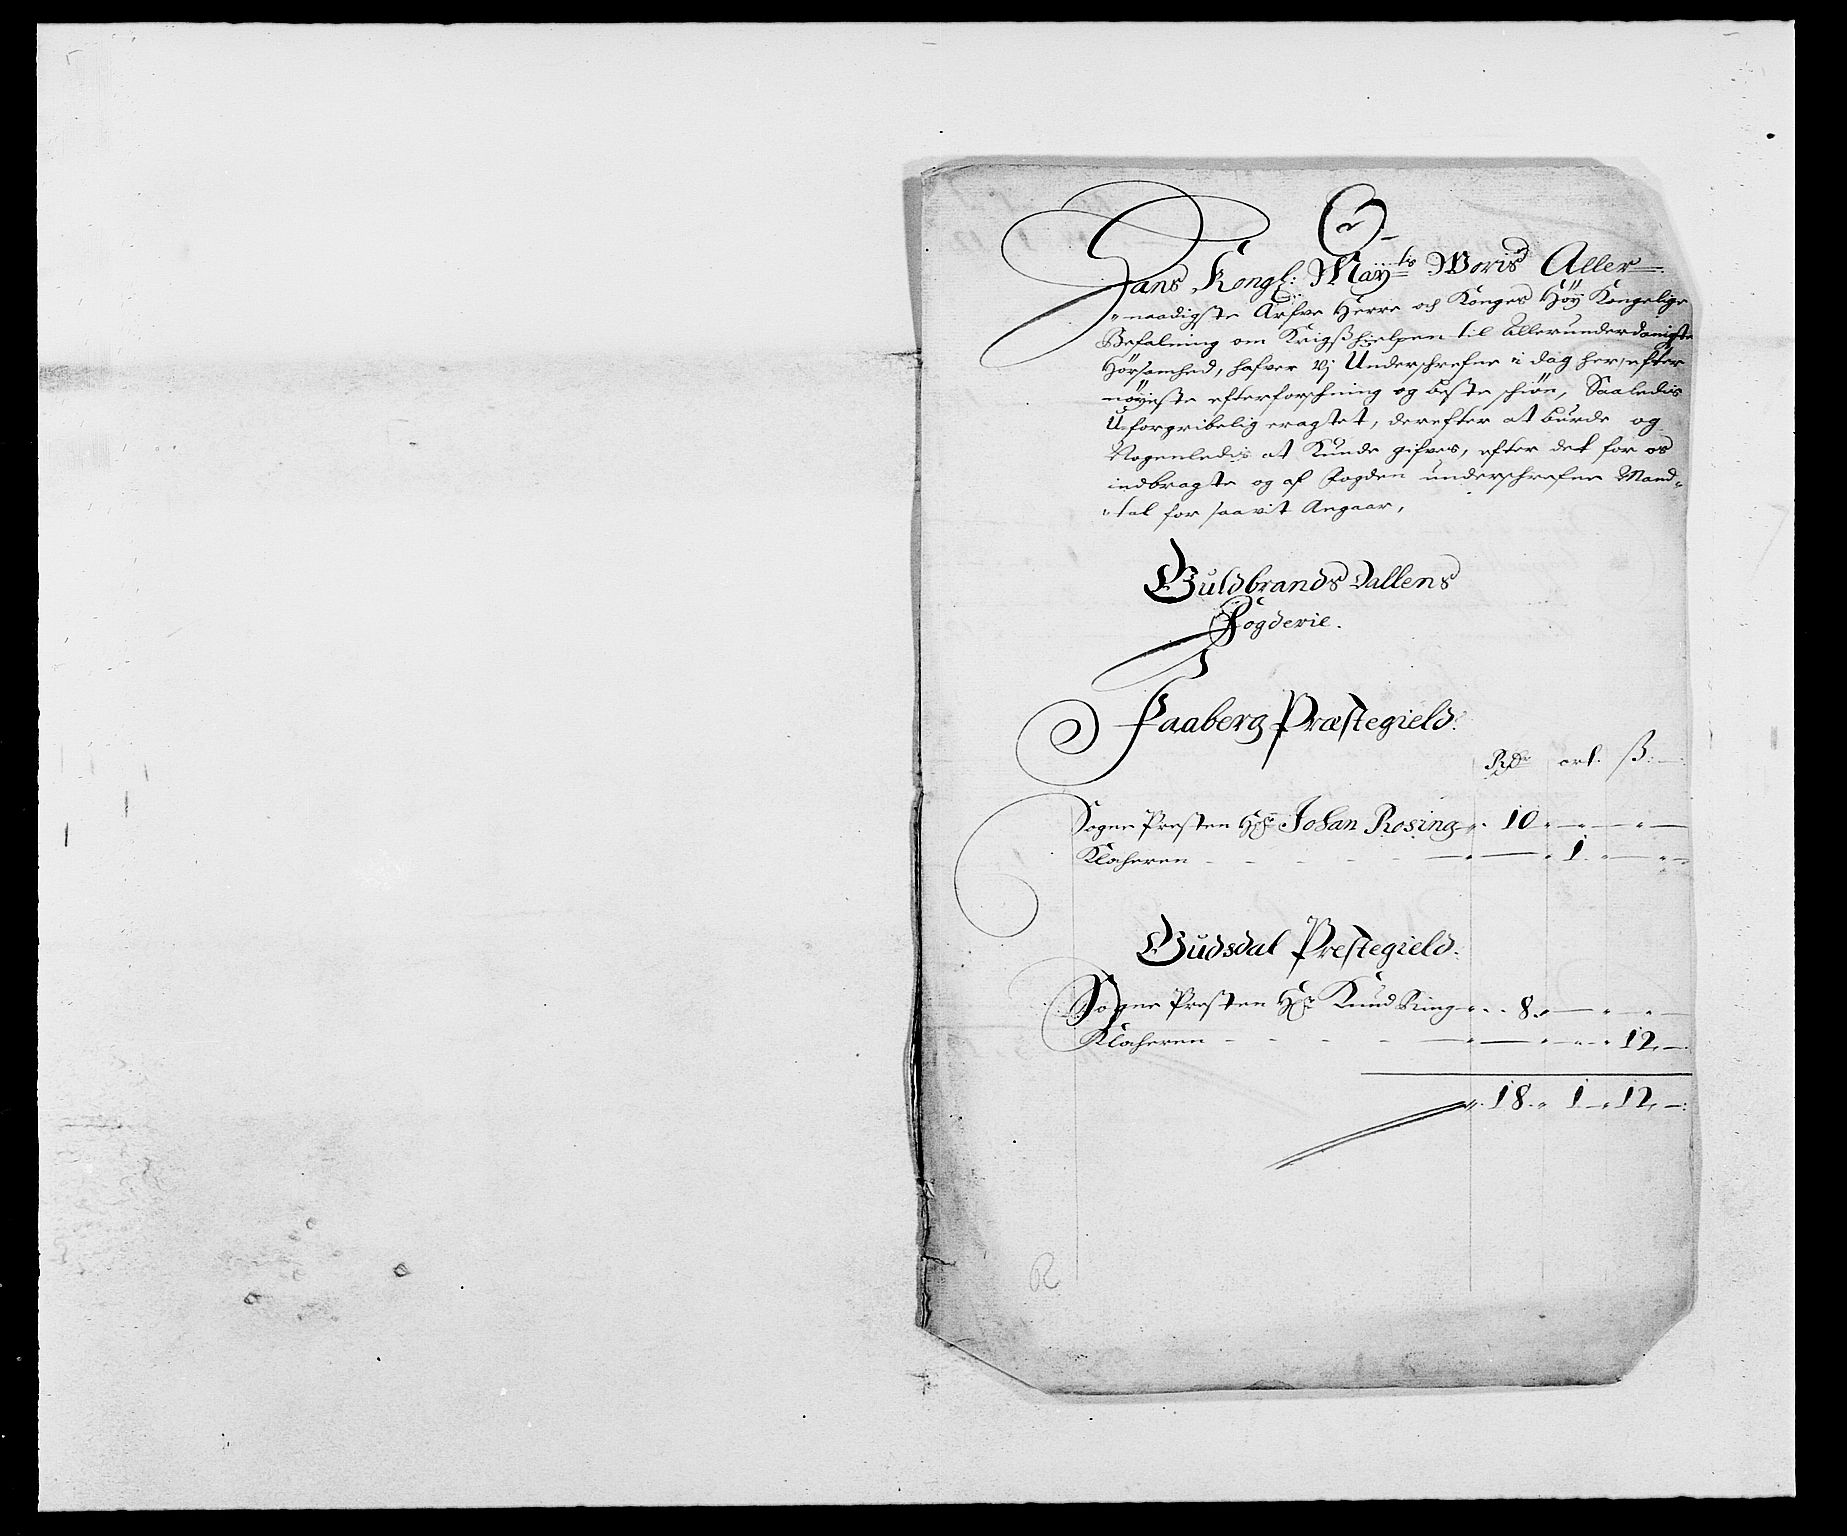 Hans Kongl: Maÿts Woris Aller
naadigste Arfve Herre och Konges Höÿ Kongelige
Befalning om Krigsshielpen til allerunderdanigste
Hörsamhed, hafver Vj Underschrefne i dag her efter
nöÿeste efterforschning og beste schiön, Saaledis
Uforgribelig eragtet, derefter at burde og
Nogenledis at Kunde gifves, efter det for os
indbragte og af Fogden underschrefne Mand
tal for saavit Angaar,
Guldbrands Dallens
Fogderie.
Faaberg Præstegield.
Rdr ort. ß:
Sogne Presten Hr Johan Rosing 10
Klocheren 1
Gudsdal Prestegield.
Sogne Presten Hr Knud Ring 8
Klocheren 12
18 1 12